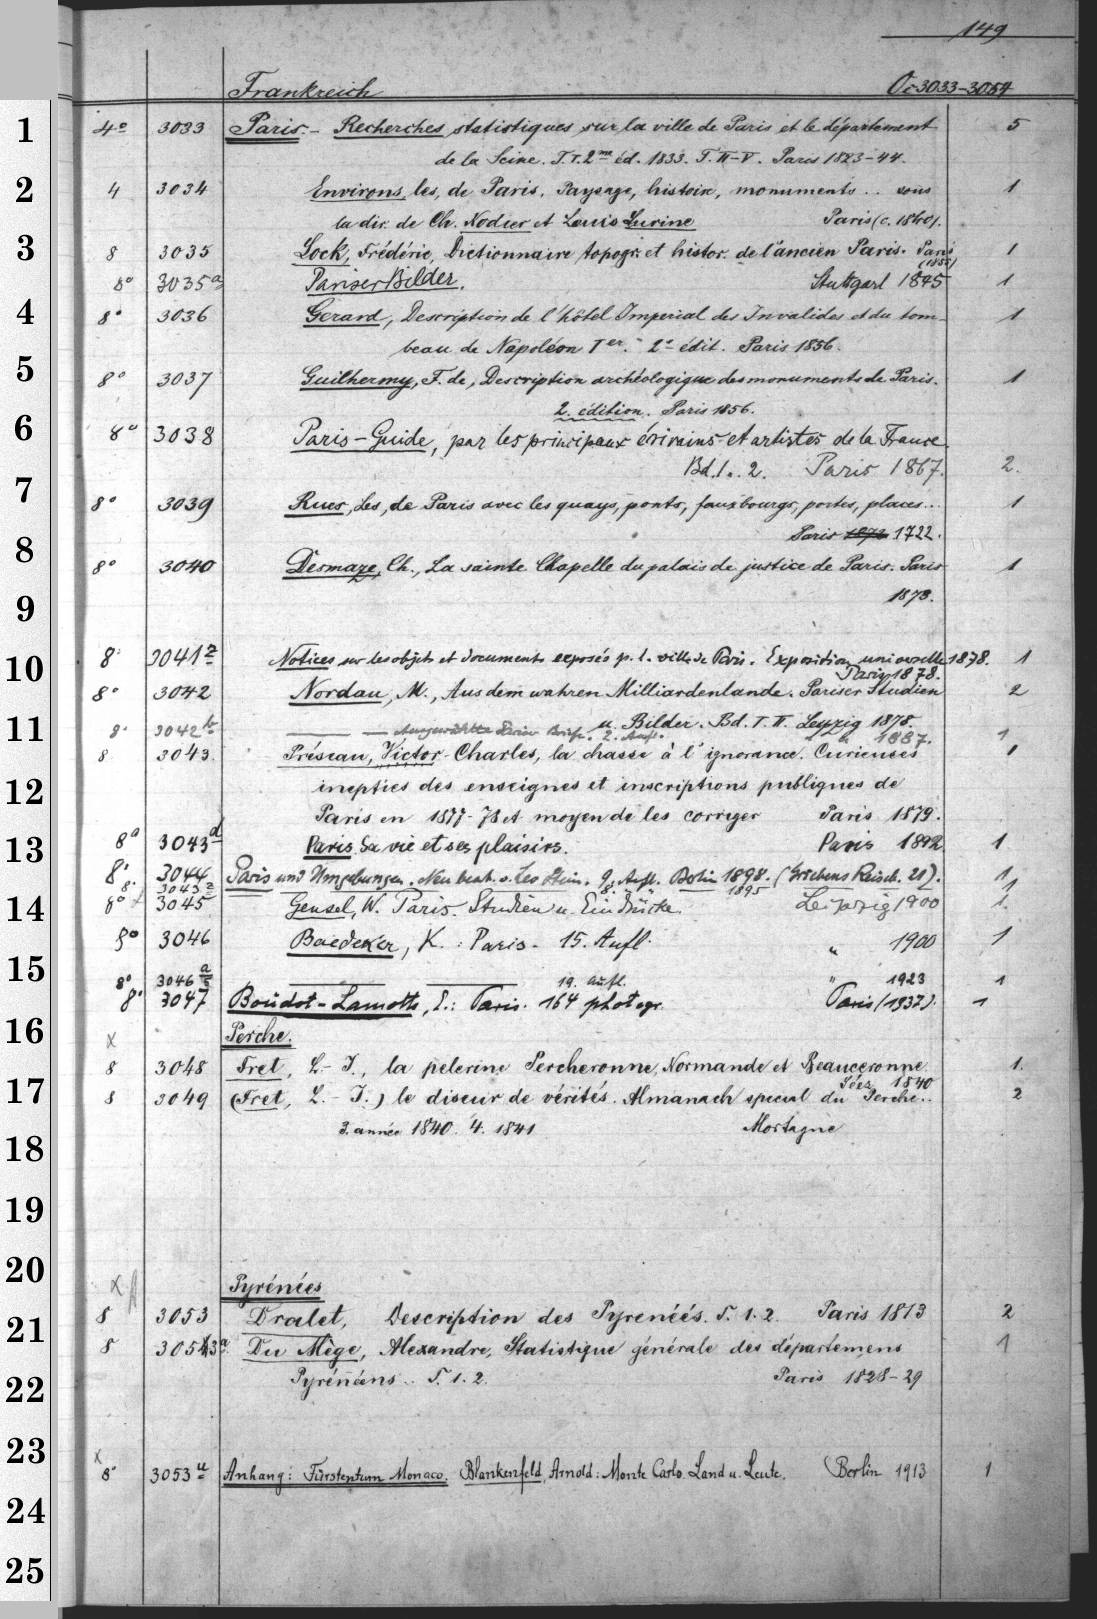 149
Frankreich Oc 3033-3054
1 4° 3033 Paris.- Recherches statistiques sur la ville de Paris et le département 5
de la Seine. T. I. 2me éd. 1833. T. II-V. Paris 1823-44.
2 4 3034 Environs, les, de Paris. Paysage, histoire, monuments .. sous 1
la dir. de Ch. Nodier et Louis Lurine Paris (c. 1840).
3 8 3035 Lock, Frédéric, Dictionnaire topogr. et histor. de l'ancien Paris. Paris 1
(1855)
8° 3035a Pariser Bilder. Stuttgart 1845 1
4 8° 3036 Gerard, Description de l'hôtel Imperial des Invalides et du tom- 1
beau de Napoléon Ier. - 2e édit. Paris 1856.
5 8° 3037 Guilhermy, F. de, Description archéologique des monuments de Paris. 1
2. édition. Paris 1856.
6 8° 3038 Paris-Guide, par les principaux écrivains et artistes de la France.
Bd. 1. 2. Paris 1867. 2.
7 8° 3039 Rues, les, de Paris avec les quays, ponts, fauxbourgs, portes, places... 1
Paris 1722.
8 8° 3040 Desmaze, Ch., La sainte Chapelle du palais de justice de Paris. Paris 1
9 1873.
10 8° 3041a Notices sur les objets et documents exposés p. l. ville de Paris. Exposition universelle 1878. 1
Paris 1878.
8° 3042 Nordau, M., Aus dem wahren Milliardenlande. Pariser Studien 2
u. Bilder. Bd. I. II. Leipzig 1878.
11 8° 3042b — — Ausgewählte Pariser Briefe. 2. Aufl. " " 1887. 1
8 3043 Préseau, Victor-Charles, la chasse à l'ignorance. Curieuses 1
12 inepties des enseignes et inscriptions publiques de
Paris en 1877-78 et moyen de les corriger Paris 1879.
13 8° 3043d Paris. Sa vie et ses plaisirs. Paris 1892 1
8° 3044 Paris und Umgebungen. Neu bearb. v. Leo Stein. 9. Aufl. Berlin 1898. (Griebens Reiseb. 21). 1
8. 3043a 8. 1895 1
14 8° 3045 Gensel, W. Paris. Studien u. Eindrücke. Leipzig 1900 1.
8° 3046 Baedeker, K.: Paris. 15. Aufl. " 1900 1
15 8° 3046a — — 19. Aufl. " 1923 1
8° 3047 Boudot-Lamotte, E.: Paris. 164 photogr. Paris (1937). 1
16 x Perche.
8 3048 Fret, L.-J., la pelerine Percheronne, Normande et Beauceronne. 1.
Séez 1840
17 8 3049 (Fret, L.-J.) le diseur de vérités. Almanach special du Perche.. 2
3. année 1840. 4. 1841 Mortagne
18
19
20 x Pyrénées
8 3053 Dralet, Description des Pyrenéés. T. 1. 2. Paris 1813 2
21 8 3053a Du Mège, Alexandre, Statistique générale des départemens 1
22 Pyrénéens.. T. 1. 2. Paris 1828-29
23 x
8° 3053u Anhang: Fürstentum Monaco. Blankenfeld, Arnold: Monte Carlo. Land u. Leute. (Berlin 1913 1
24
25